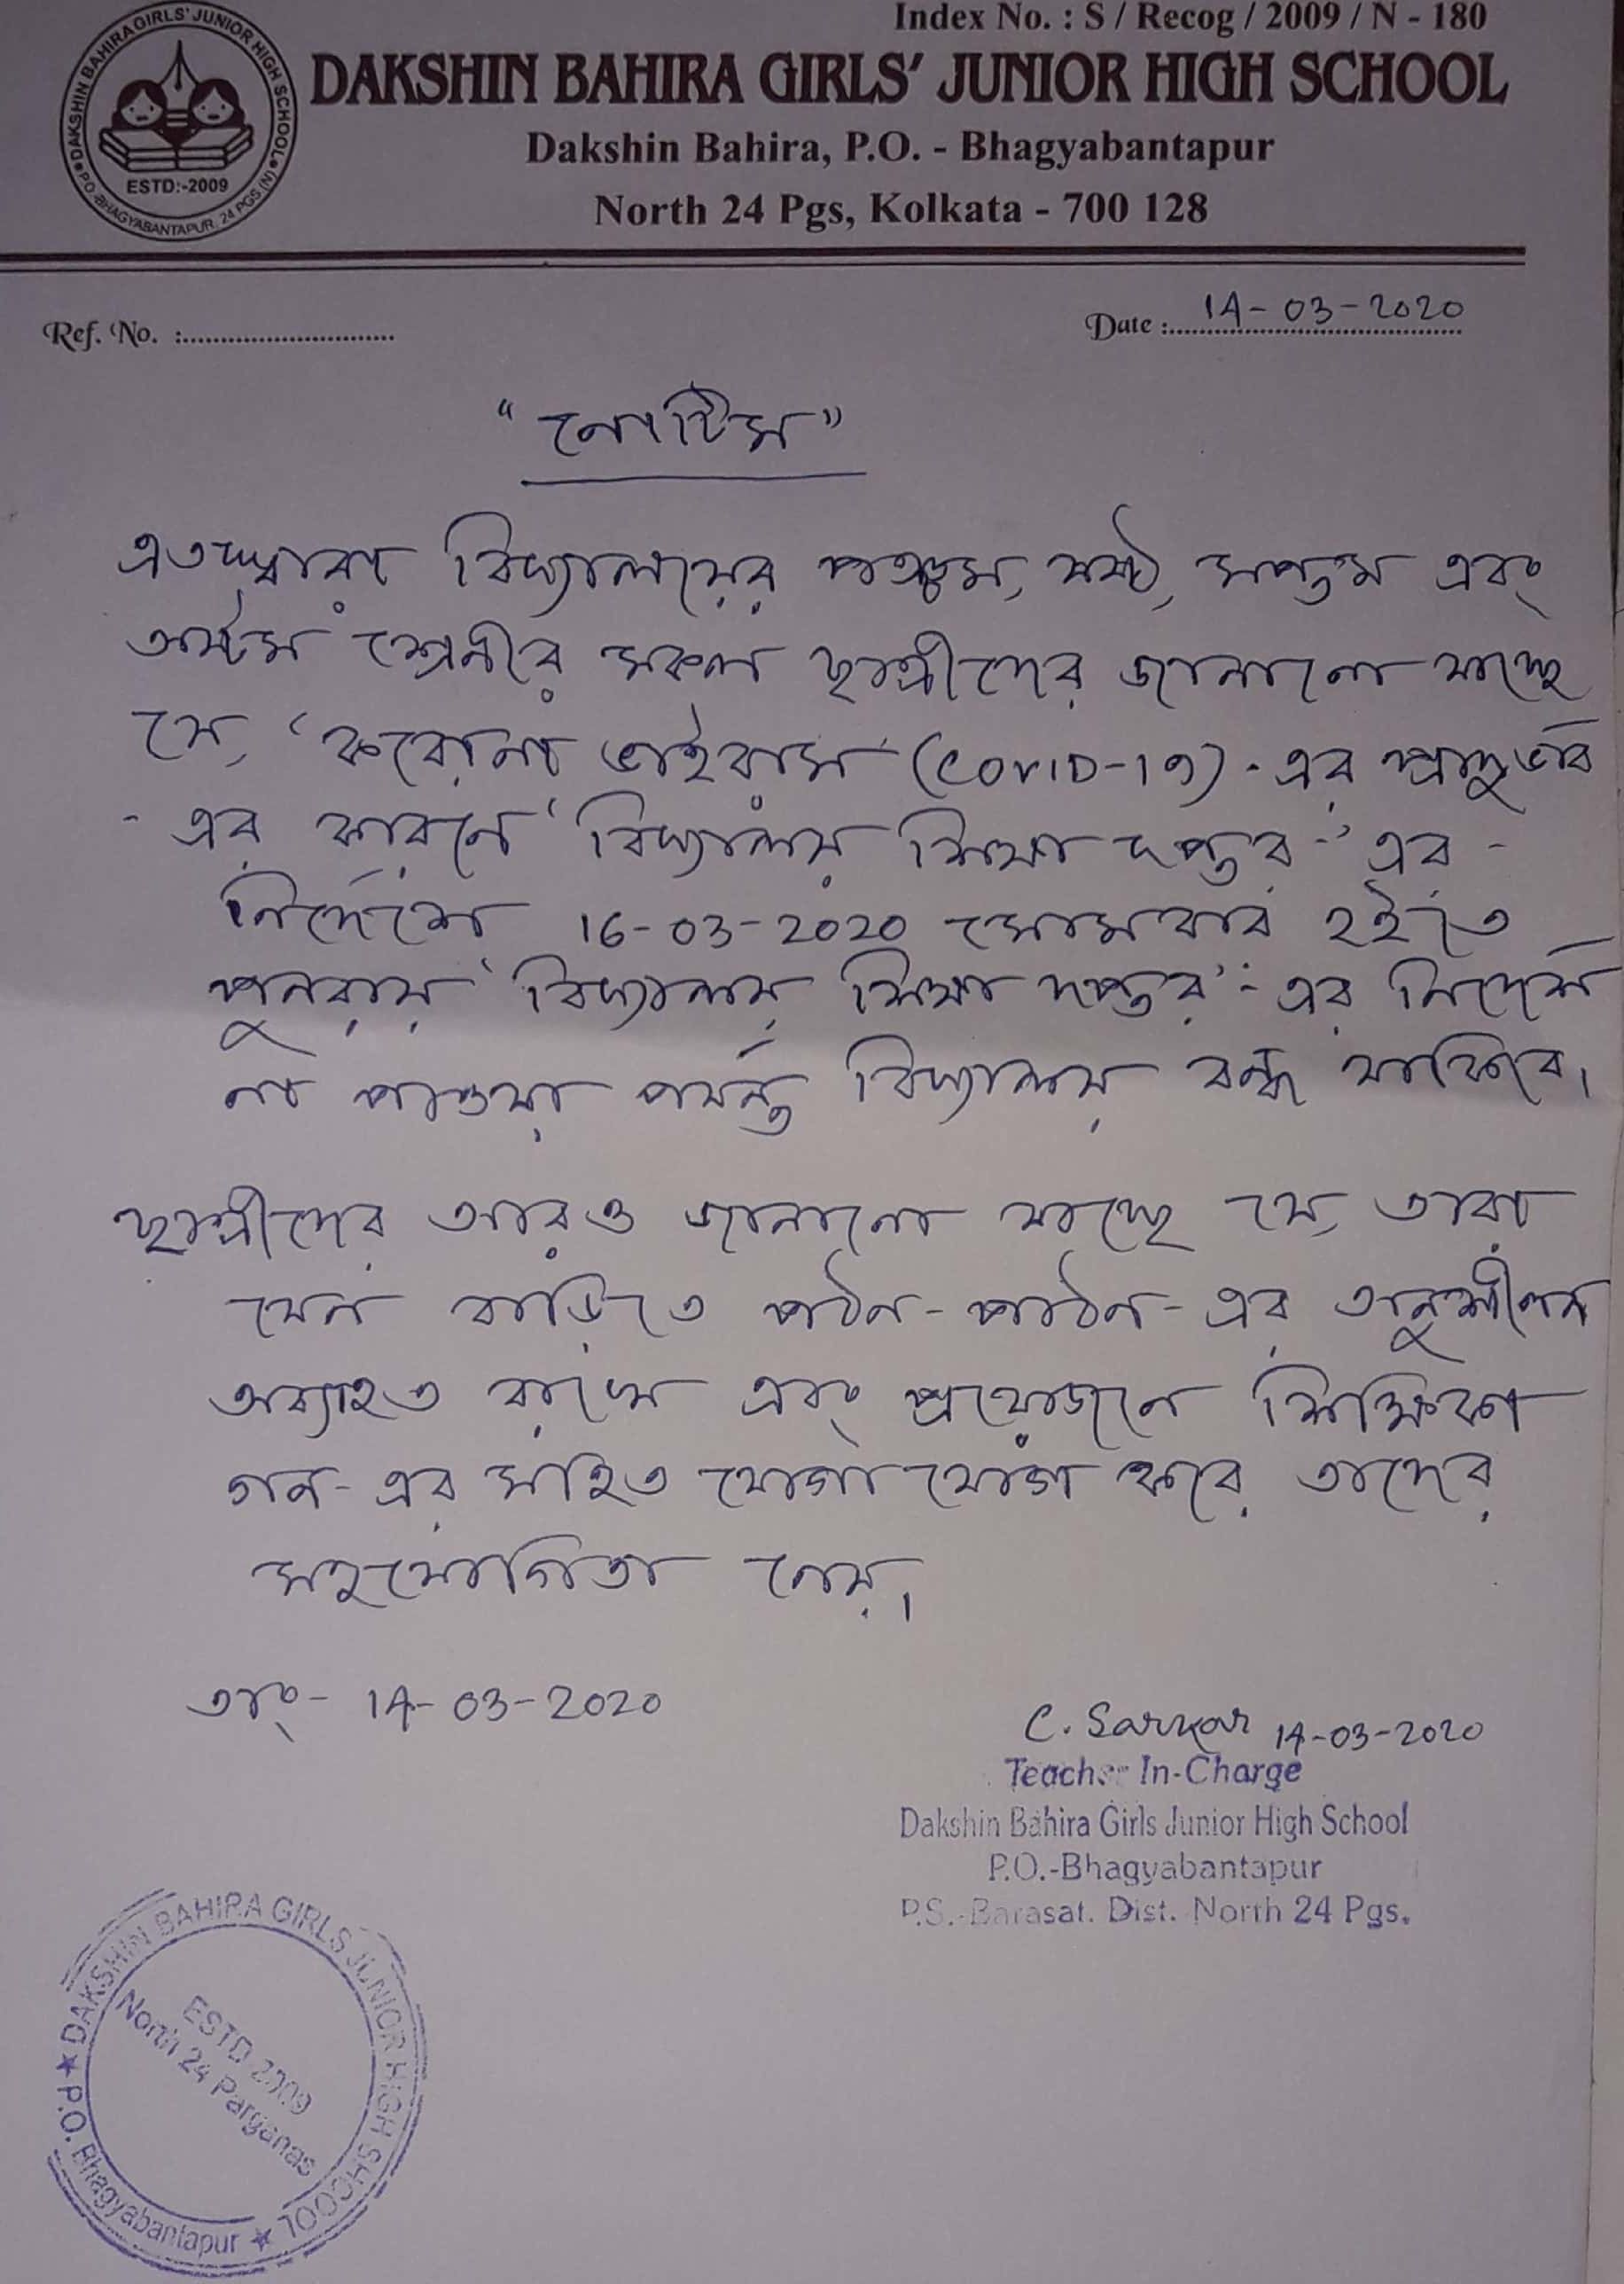 Index No. : S / Recog / 2009 / N - 180
DAKSHIN BAHIRA GIRLS' JUNIOR HIGH SCHOOL
Dakshin Bahira, P.O. - Bhagyabantapur
North 24 Pgs, Kolkata - 700 128
DAKSHIN BAHIRA GIRLS' JUNIOR HIGH SCHOOL
P.O.-BHAGYABANTAPUR, 24 PGS (N)
ESTD:-2009
Ref. No. :............................
Date : 14-03-2020
"নোটিস"
এতদ্দ্বারা বিদ্যালয়ের পঞ্চম, ষষ্ঠ, সপ্তম এবং
অষ্টম শ্রেনীর সকল ছাত্রীদের জানানো যাচ্ছে
যে, 'করোনা ভাইরাস (COVID-19)-এর প্রাদুর্ভাব
- এর কারনে 'বিদ্যালয় শিক্ষা দপ্তর-' এর -
নির্দেশে 16-03-2020 সোমবার হইতে
পুনরায় 'বিদ্যালয় শিক্ষা দপ্তর'-এর নির্দেশ
না পাওয়া পর্যন্ত বিদ্যালয় বন্ধ থাকিবে।
ছাত্রীদের আরও জানানো যাচ্ছে যে, তারা
যেন বাড়িতে পঠন-পাঠন-এর অনুশীলন
অব্যাহত রাখে এবং প্রয়োজনে শিক্ষিকা
গন-এর সহিত যোগাযোগ করে তাদের
সহযোগিতা নেয়।
তাং- 14-03-2020
C. Sarkar 14-03-2020
Teacher In-Charge
Dakshin Bahira Girls Junior High School
P.O.-Bhagyabantapur
P.S.-Barasat. Dist. North 24 Pgs.
DAKSHIN BAHIRA GIRLS JUNIOR HIGH SHCOOL
ESTD 2009
North 24 Parganas
P.O. Bhagyabantapur